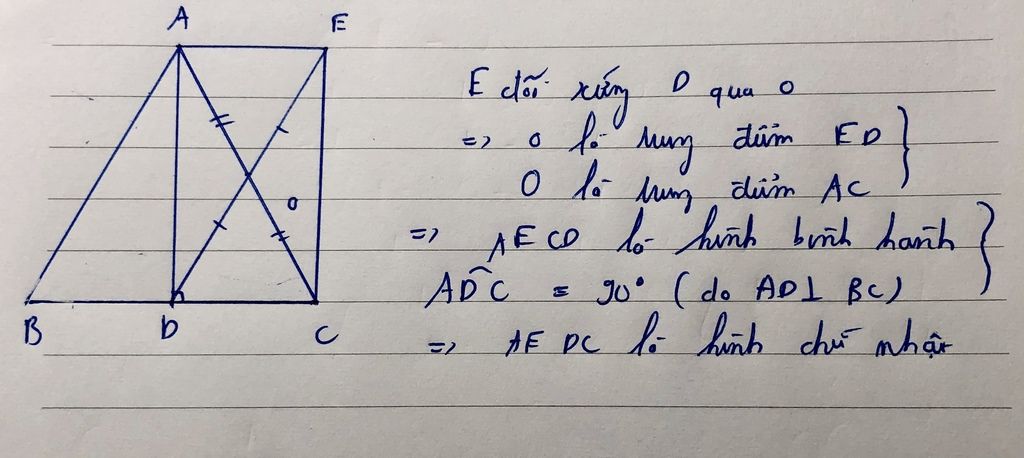 A E
E đối xứng D qua O
=> O là trung điểm ED
O là trung điểm AC
O
=> AECD là hình bình hành
ADC = 90° (do AD⊥ BC)
B D C
=> AEDC là hình chữ nhật